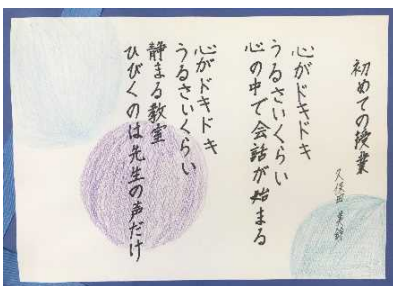 初めての授業
久保田 美鈴
心がドキドキ
うるさいくらい
心の中で会話が始まる
心がドキドキ
うるさいくらい
静まる教室
ひびくのは先生の声だけ